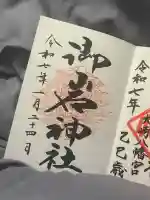 令和七年
八幡宮
乙巳歳
御岩神社
令和七年一月二十四日